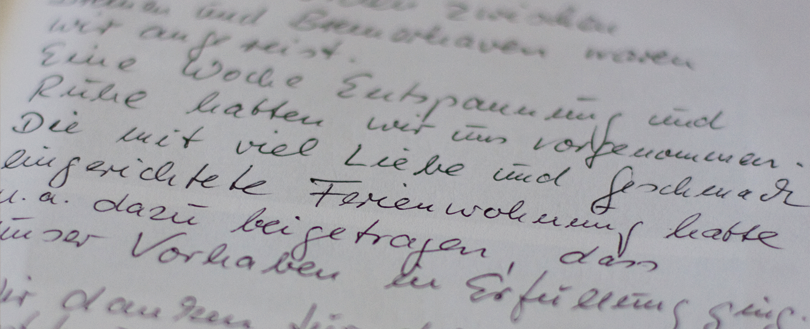 zwischen
und Bremerhaven waren
wir angereist.
Eine Woche Entspannung und
Ruhe hatten wir uns vorgenommen.
Die mit viel Liebe und Geschmack
eingerichtete Ferienwohnung hatte
u.a. dazu beigetragen, dass
unser Vorhaben in Erfüllung ging.
Wir danken für